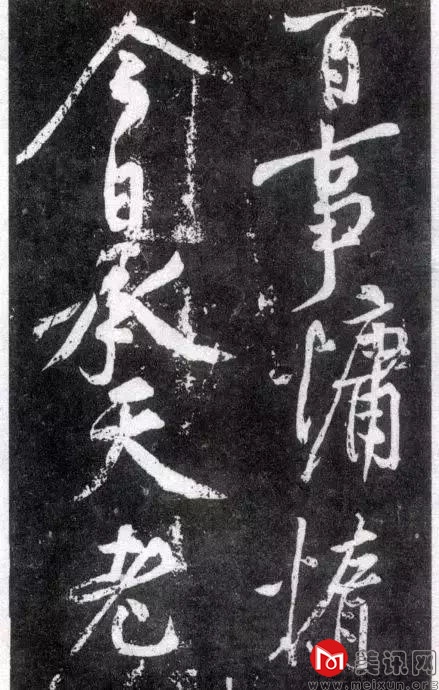 百事慵惰
今日承天老
美讯网
www.meixun.org